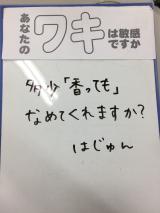 あなたの
ワキ
は敏感
ですか
多少「香っても」
なめてくれますか?
はじゅん